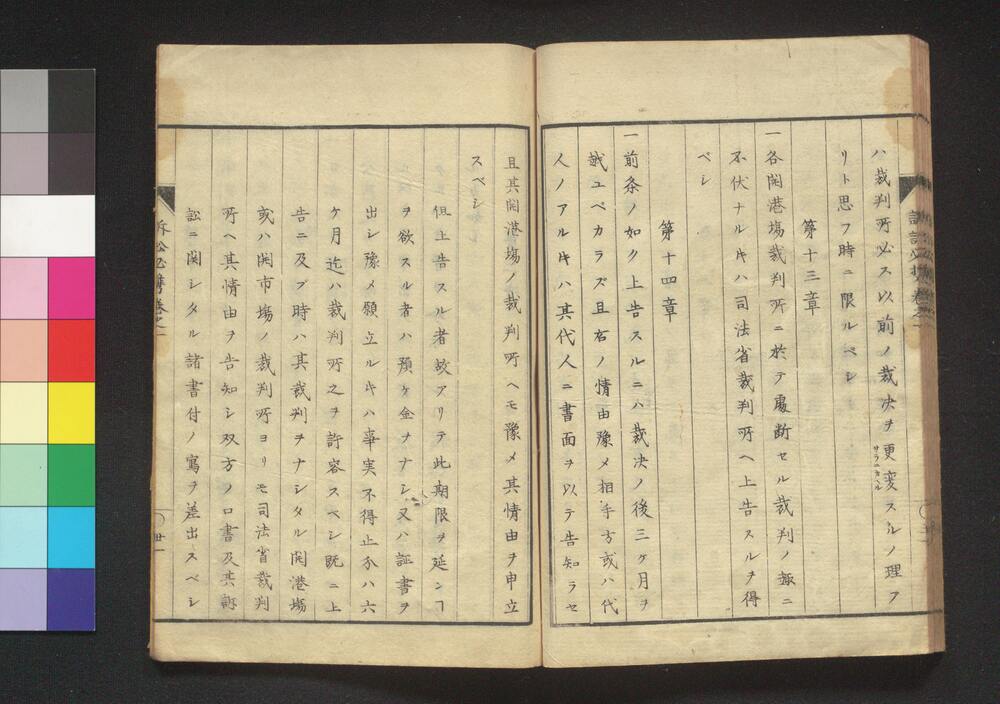 ハ裁判所必ス以前ノ裁决ヲ更変スルノ理フ
サラニカヘル
リト思フ時ニ限ルベシ
第十三章
一各開港塲裁判所ニ於テ處断セル裁判ノ趣ニ
不伏ナルキハ司法省裁判所ヘ上告スルヲ得
ベシ
第十四章
一前条ノ如ク上告スルニハ裁决ノ後三ヶ月ヲ
越ユベカラズ且右ノ情由豫メ相手方或ハ代
人ノアルキハ其代人ニ書面ヲ以テ告知ラセ
且其開港塲ノ裁判所ヘモ豫メ其情由ヲ申立
スベシ
但上告スル者故アリテ此期限ヲ延ンヿ
ヲ欲スル者ハ預ケ金ナナシ又ハ証書ヲ
出シ豫メ願立ルキハ事実不得止分ハ六
ケ月迄ハ裁判所之ヲ許容スベシ既ニ上
告ニ及ブ時ハ其裁判ヲナシタル開港塲
或ハ開市塲ノ裁判所ヨリモ司法省裁判
所ヘ其情由ヲ告知シ双方ノ口書及其訴
訟ニ関シタル諸書付ノ寫ヲ差出スベシ
訴訟必携巻之一
廿一